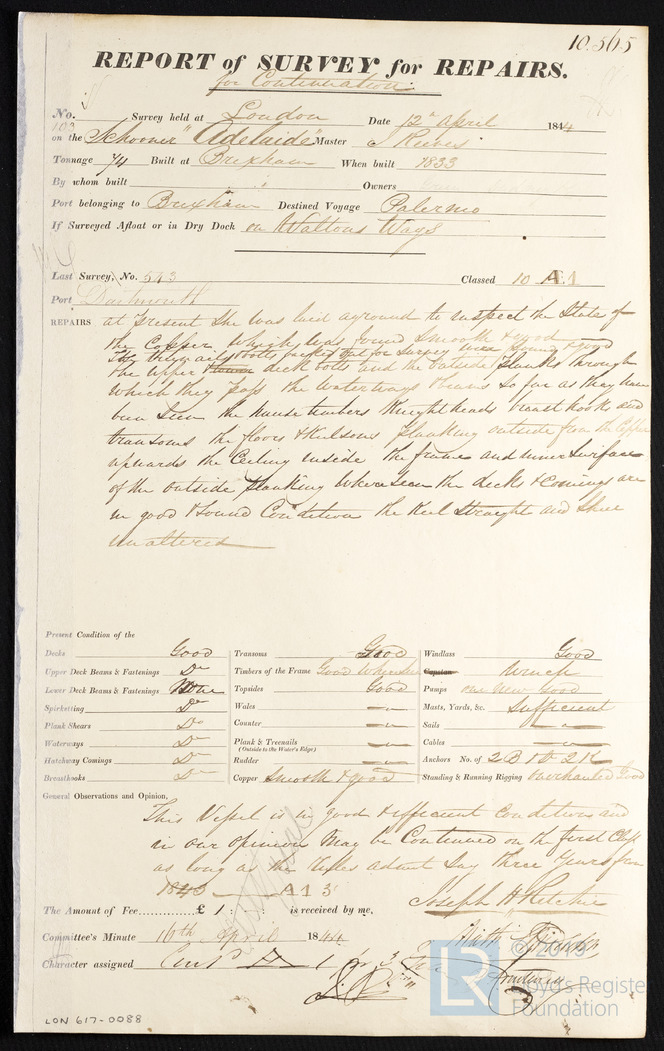 10.565
REPORT of SURVEY for REPAIRS.
for Continuation.
No. 103 Survey held at London Date 12th April 1844
on the Schooner "Adelaide" Master J Reeves
Tonnage 74 Built at Brixham When built 1833
By whom built Owners
Port belonging to Brixham Destined Voyage Palermo
If Surveyed Afloat or in Dry Dock on Waltons Ways
Last Survey, No. 543 Classed 10 A1
Port Dartmouth
REPAIRS at present she was laid aground to inspect the State of
the Copper which was found smooth & good
bolts backed out for survey were sound & good
the upper deck bolts and the outside planks through
which they pass the waterways & beams so far as they have
been seen the hawse timbers Knightheads breast hooks and
transoms the floors & Keelsons planking outside from the Copper
upwards the Ceiling inside the frame and inner Surface
of the outside planking where seen the decks & Comings are
in good & Sound Condition the Keel Straight and Shear
unaltered
Present Condition of the
Decks Good
Upper Deck Beams & Fastenings Do
Lower Deck Beams & Fastenings None
Spirketting Do
Plank Shears Do
Waterways Do
Hatchway Comings Do
Breasthooks Do
Transoms Good
Timbers of the Frame Good Where seen
Topsides Good
Wales
Counter
Plank & Treenails
(Outside to the Water's Edge)
Rudder
Copper Smooth & good
Windlass Good
Capstan Winch
Pumps one New Good
Masts, Yards, &c. Sufficient
Sails
Cables
Anchors No. of 2 B 1 S 2 K
Standing & Running Rigging overhauled Good
General Observations and Opinion,
This Vessel is in good & efficient condition and
in our opinion May be Continued on the first Class
as long as the Rules admit Say three Years from
1843 A 1 3
The Amount of Fee............£ 1 : : is received by me,
Joseph H Ritchie
Committee's Minute 16th April 1844
Character assigned Contd A 1 for 3
LON 617-0088
© 2019
LR
Lloyd's Register
Foundation